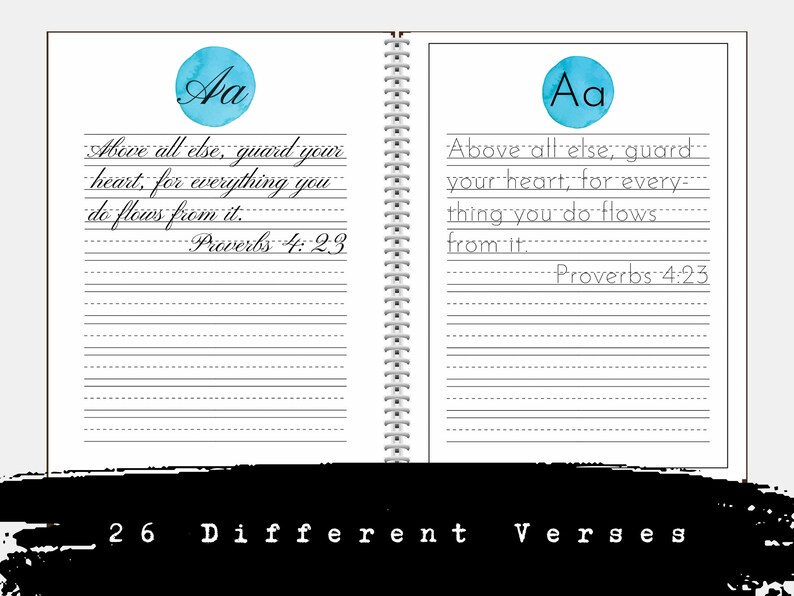 Aa
Above all else, guard your
heart, for everything you
do flows from it.
Proverbs 4: 23
Aa
Above all else, guard
your heart, for every-
thing you do flows
from it.
Proverbs 4:23
26 Different Verses